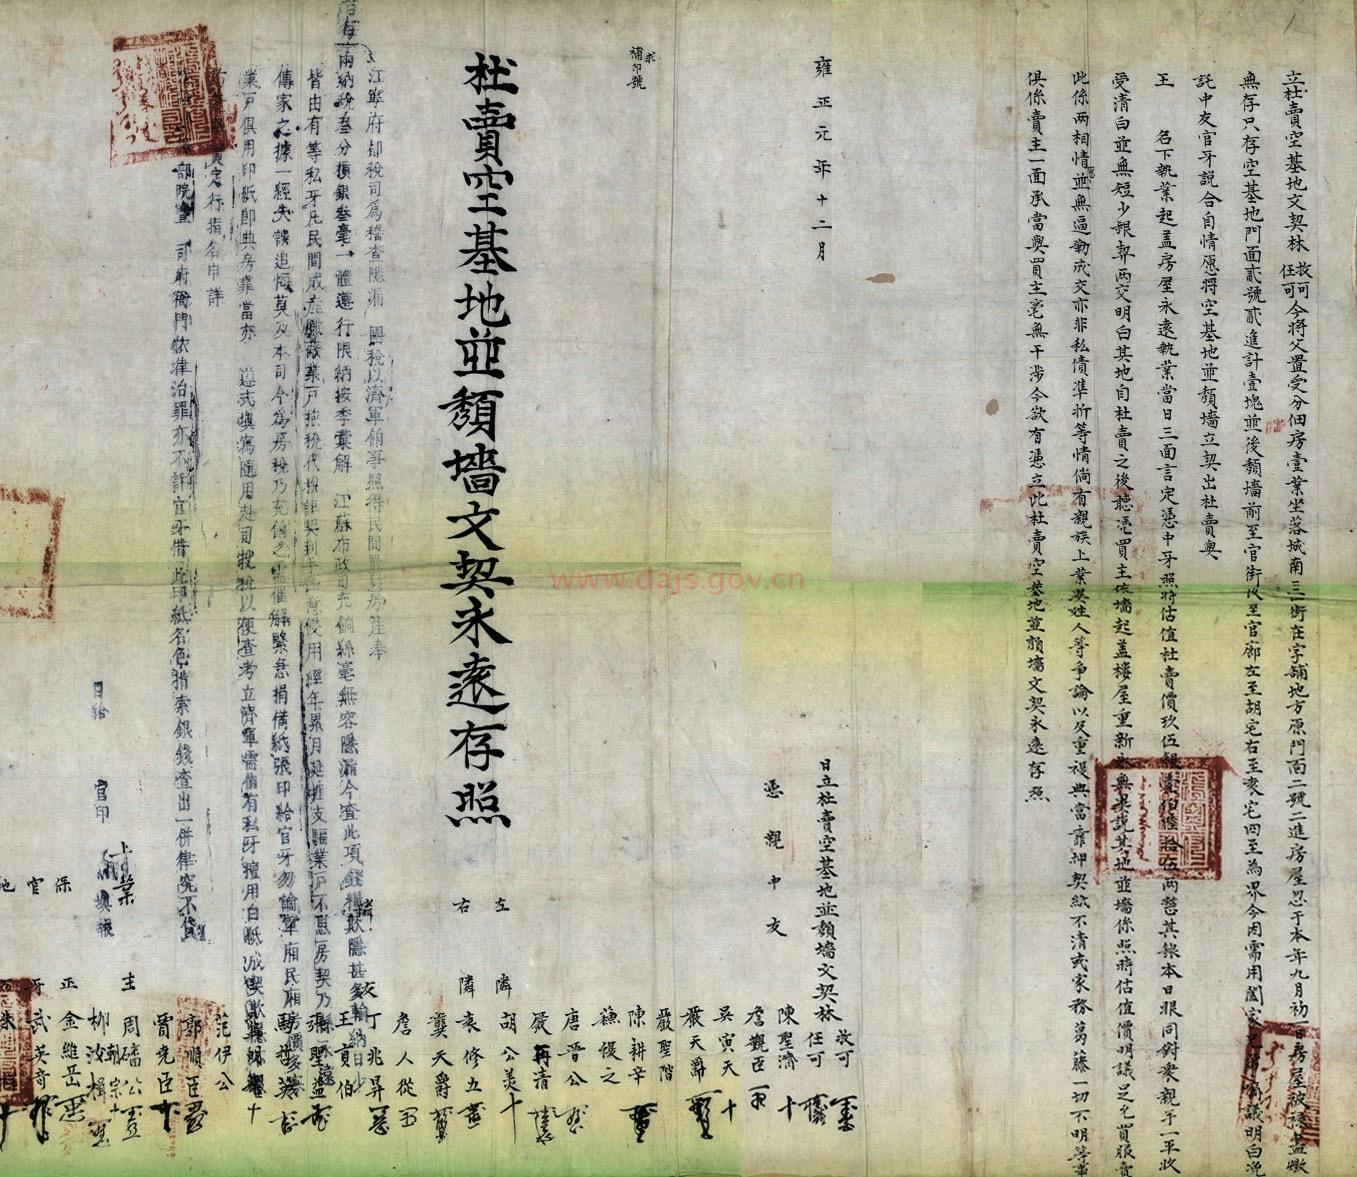 立杜賣空基地文契林 攸可 任可 今將父置受分佃房壹業坐落城南三衖在字鋪地方原門面二號二進房屋忽于本年九月初一日房屋被祿盖燬
無存只存空基地門面貳號貳進計壹塊並後頹墻前至官街後至官廊左至胡宅右至袁宅四至為界今因需用闔家兄弟商議明白浼
託中友官牙説合自情愿將空基地並頹墻立契出杜賣與
王 名下執業起盖房屋永遠執業當日三面言定憑中牙照時估值杜賣價玖伍銀壹佰陸拾伍兩整其銀本日眼同對衆親手一平收
受清白並無短少銀契两交明白其地自杜賣之後聽凴買主依墻起盖樓屋重新永無異説其地並墻係照時估值價明議足允買服賣
此係两相情愿並無逼勒成交亦非私債凖折等情倘有親族上業異姓人等爭論以及重複典當靠押契紋不清或家務葛藤一切不明等事
俱係賣主一面承當與買主毫無干涉今欲有憑立此杜賣空基地並頹墻文契永遠存照
雍正元年十二月 日立杜賣空基地並頹墻文契林 攸可 任可
憑親中友 陳聖濟 十
詹觀臣
吳寅天 十
嚴天爵
嚴聖階
陳耕辛
蘓俊之
唐晉公
嚴再清
左隣 胡公美 十
右隣 袁修五
龔天爵
詹人從
丁兆昇
王貢伯
張聖益
范伊公
郭順臣
胥堯臣
上業主 周璠公
柳汝楫
保正 金維岳
官牙 武英奇
求補印號
杜賣空基地並頹墻文契永遠存照
江寧府却税司爲稽查隱漏 國税以濟軍餉事照得民間買賣房產奉
每兩納税叁分損銀叁毫一體遵行限納按季彙解 江蘇布政司充餉絲毫無容隱漏今查此項錢糧欺隱甚多輸納日少
皆由有等私牙凡民間成産縣啟業户抱税代投詎契到手任意侵用經年累月延捱支騙業户不思房契乃係永遠
傳家之據一經失誤追悔莫及本司今爲房税乃充餉之需催解緊急捐備紙張印給官牙勿論軍厢民厢房價多寡
業户俱用印紙即典房靠當亦 遵式填寫隨用赴司投税以便查考立濟軍需倘有私牙擅用白紙成契欺隱
定行指名申詳
部院 司府衙門依律治罪亦不許官牙借此印紙名色掯索銀錢查出一併律究不貸
日給 官印 填報
www.dajs.gov.cn